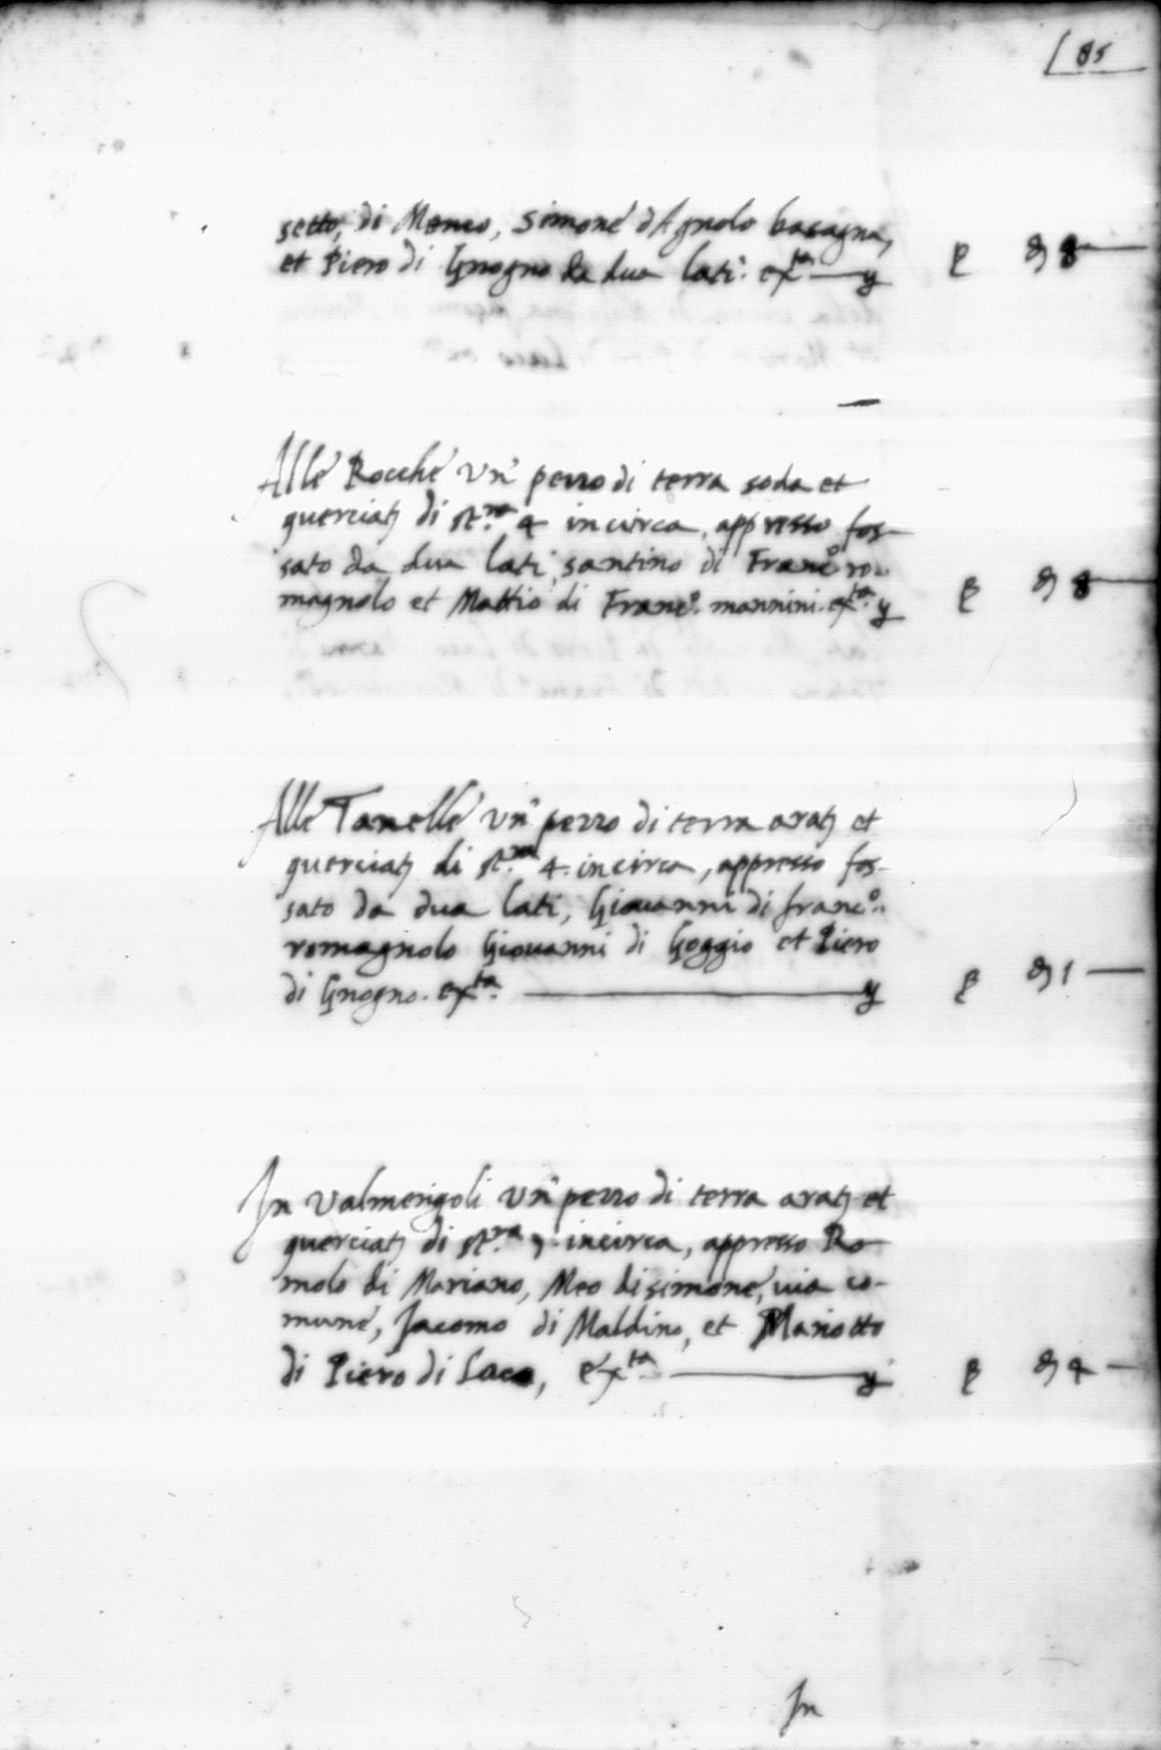 85
setto, di Menco, Simone d'Agnolo basagna,
et Piero di Gnogno da dua lati. exta y
Alle Rocche un pezzo di terra soda et
querciata di stra 4 incirca, appresso fos-
sato da dua lati, santino di Franco ro-
magnolo et Mattio di Franco mannini. exta y
Alle Tanelle un pezzo di terra arata et
querciata di stra 4. incirca, appresso fos-
sato da dua lati, Giovanni di franco.
romagnolo Giovanni di Goggio et Piero
di Gnogno. exta. y
In Valmerigoli un pezzo di terra arata et
querciata di stra incirca, appresso Ro-
molo di Mariano, Meo di simone, via co-
mune, Jacomo di Maldino, et Mariotto
di Piero di Laca, exta y
In